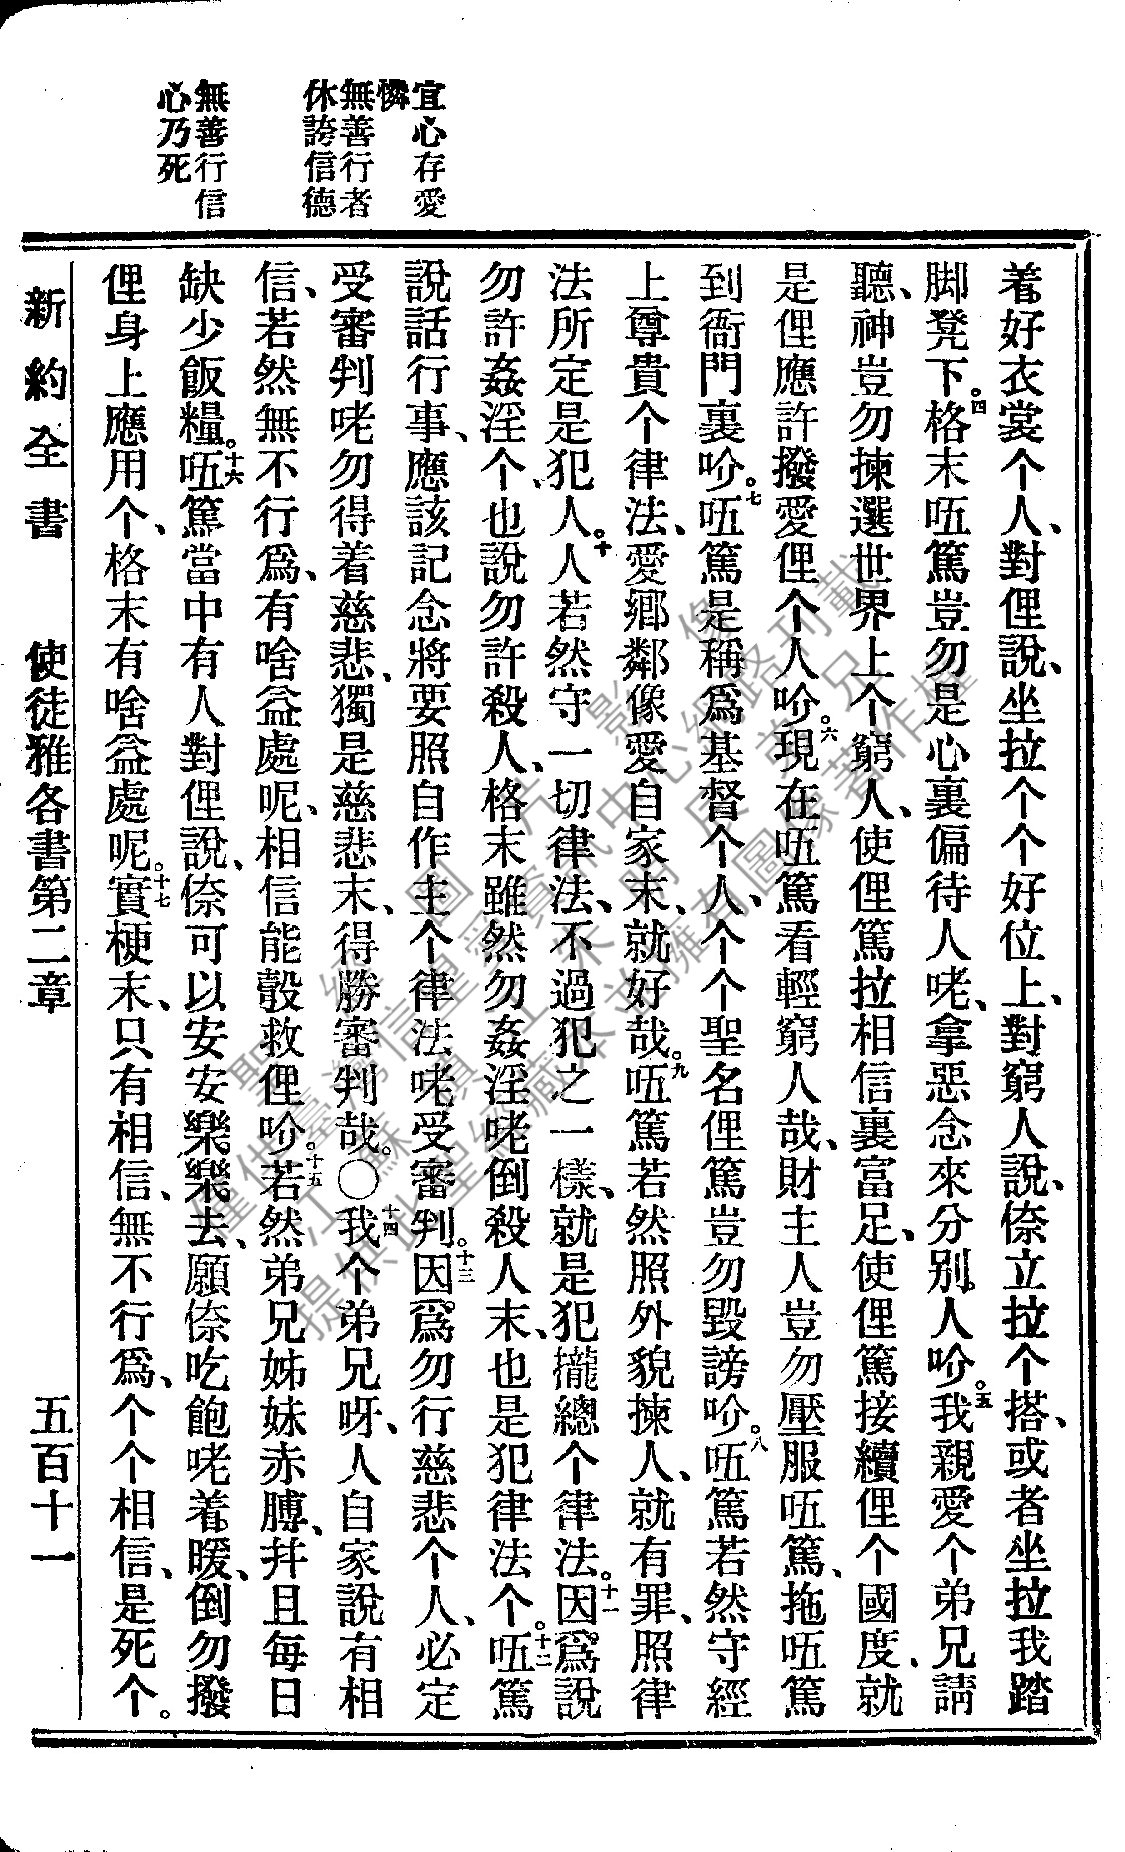 宜心存愛
憐
無善行者
休誇信德
無善行信
心乃死
着好衣裳个人、對俚說、坐拉个个好位上、對窮人說、倷立拉个搭、或者坐拉我踏
脚凳下。四格末𠵦篤豈勿是心裏偏待人咾、拿惡念來分别人吤。五我親愛个弟兄請
聽、神豈勿揀選世界上个窮人、使俚篤拉相信裏富足、使俚篤接續俚个國度、就
是俚應許撥愛俚个人吤。六現在𠵦篤看輕窮人哉、財主人豈勿壓服𠵦篤、拖𠵦篤
到衙門裏吤。七𠵦篤是稱爲基督个人、个个聖名俚篤豈勿毀謗吤。八𠵦篤若然守經
上尊貴个律法、愛鄉鄰像愛自家末、就好哉。九𠵦篤若然照外貌揀人、就有罪、照律
法所定是犯人。十人若然守一切律法、不過犯之一樣、就是犯攏總个律法。十一因爲說
勿許姦淫个、也說勿許殺人、格末雖然勿姦淫咾倒殺人末、也是犯律法个。十二𠵦篤
說話行事、應該記念將要照自作主个律法咾受審判。十三因爲勿行慈悲个人、必定
受審判咾勿得着慈悲、獨是慈悲末、得勝審判哉。〇十四我个弟兄呀、人自家說有相
信、若然無不行爲、有啥益處呢、相信能彀救俚吤。十五若然弟兄姊妹赤膊、幷且每日
缺少飯糧。十六𠵦篤當中有人對俚說、倷可以安安樂樂去、願倷吃飽咾着暖、倒勿撥
俚身上應用个、格末有啥益處呢。十七實梗末、只有相信、無不行爲、个个相信、是死个。
新約全書　使徒雅各書第二章　五百十一
聖經圖片影像
僅供臺灣信望愛資訊中心網路刊載
江蘇吳江木明民弟兄
提供此聖經藏本並擁有圖像著作權